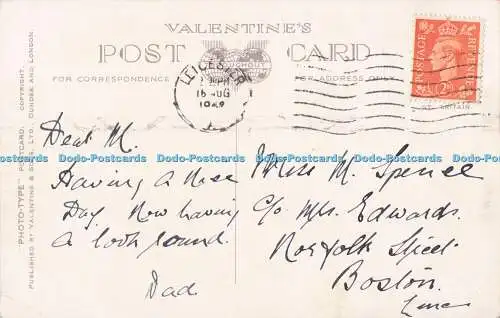 VALENTINE'S
POST CARD
FOR CORRESPONDENCE
FOR ADDRESS ONLY
LEICESTER
16 AUG
1949
POSTAGE
REVENUE
"PHOTO-TYPE" POSTCARD. COPYRIGHT.
PUBLISHED BY VALENTINE & SONS, LTD., DUNDEE AND LONDON.
Dear M.
Having a nice
Day. Now having
a look round.
Dad
Miss M. Spence
C/o Mrs. Edwards.
Norfolk Street
Boston.
Lincs
Dodo-Postcards Dodo-Postcards Dodo-Postcards Dodo-Postcards Dodo-Postcards Dodo-Postcards